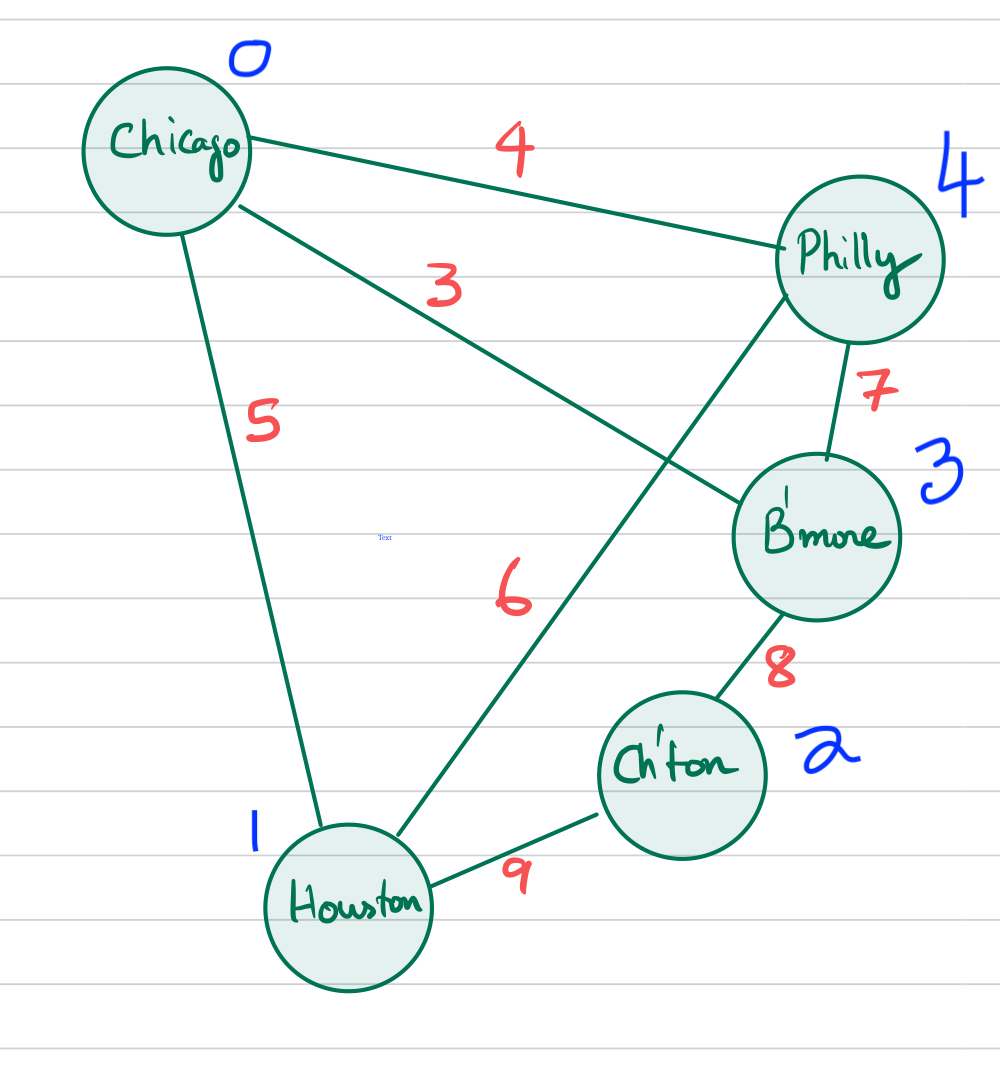 0
Chicago
4
4
Philly
3
7
5
3
B'more
Text
6
8
Ch'ton
2
1
9
Houston